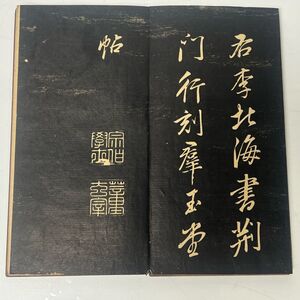 右李北海書荆
门行刻羣玉堂
帖
宗伯學士